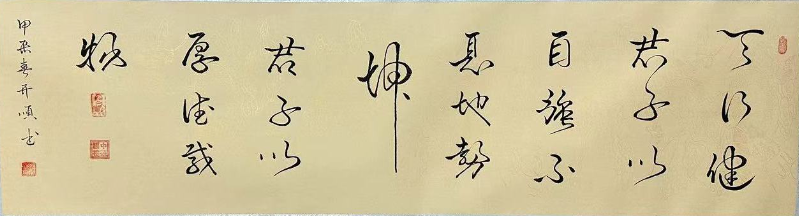 天行健
君子以
自強不
息地勢
坤
君子以
厚德載
物
甲辰春开順书